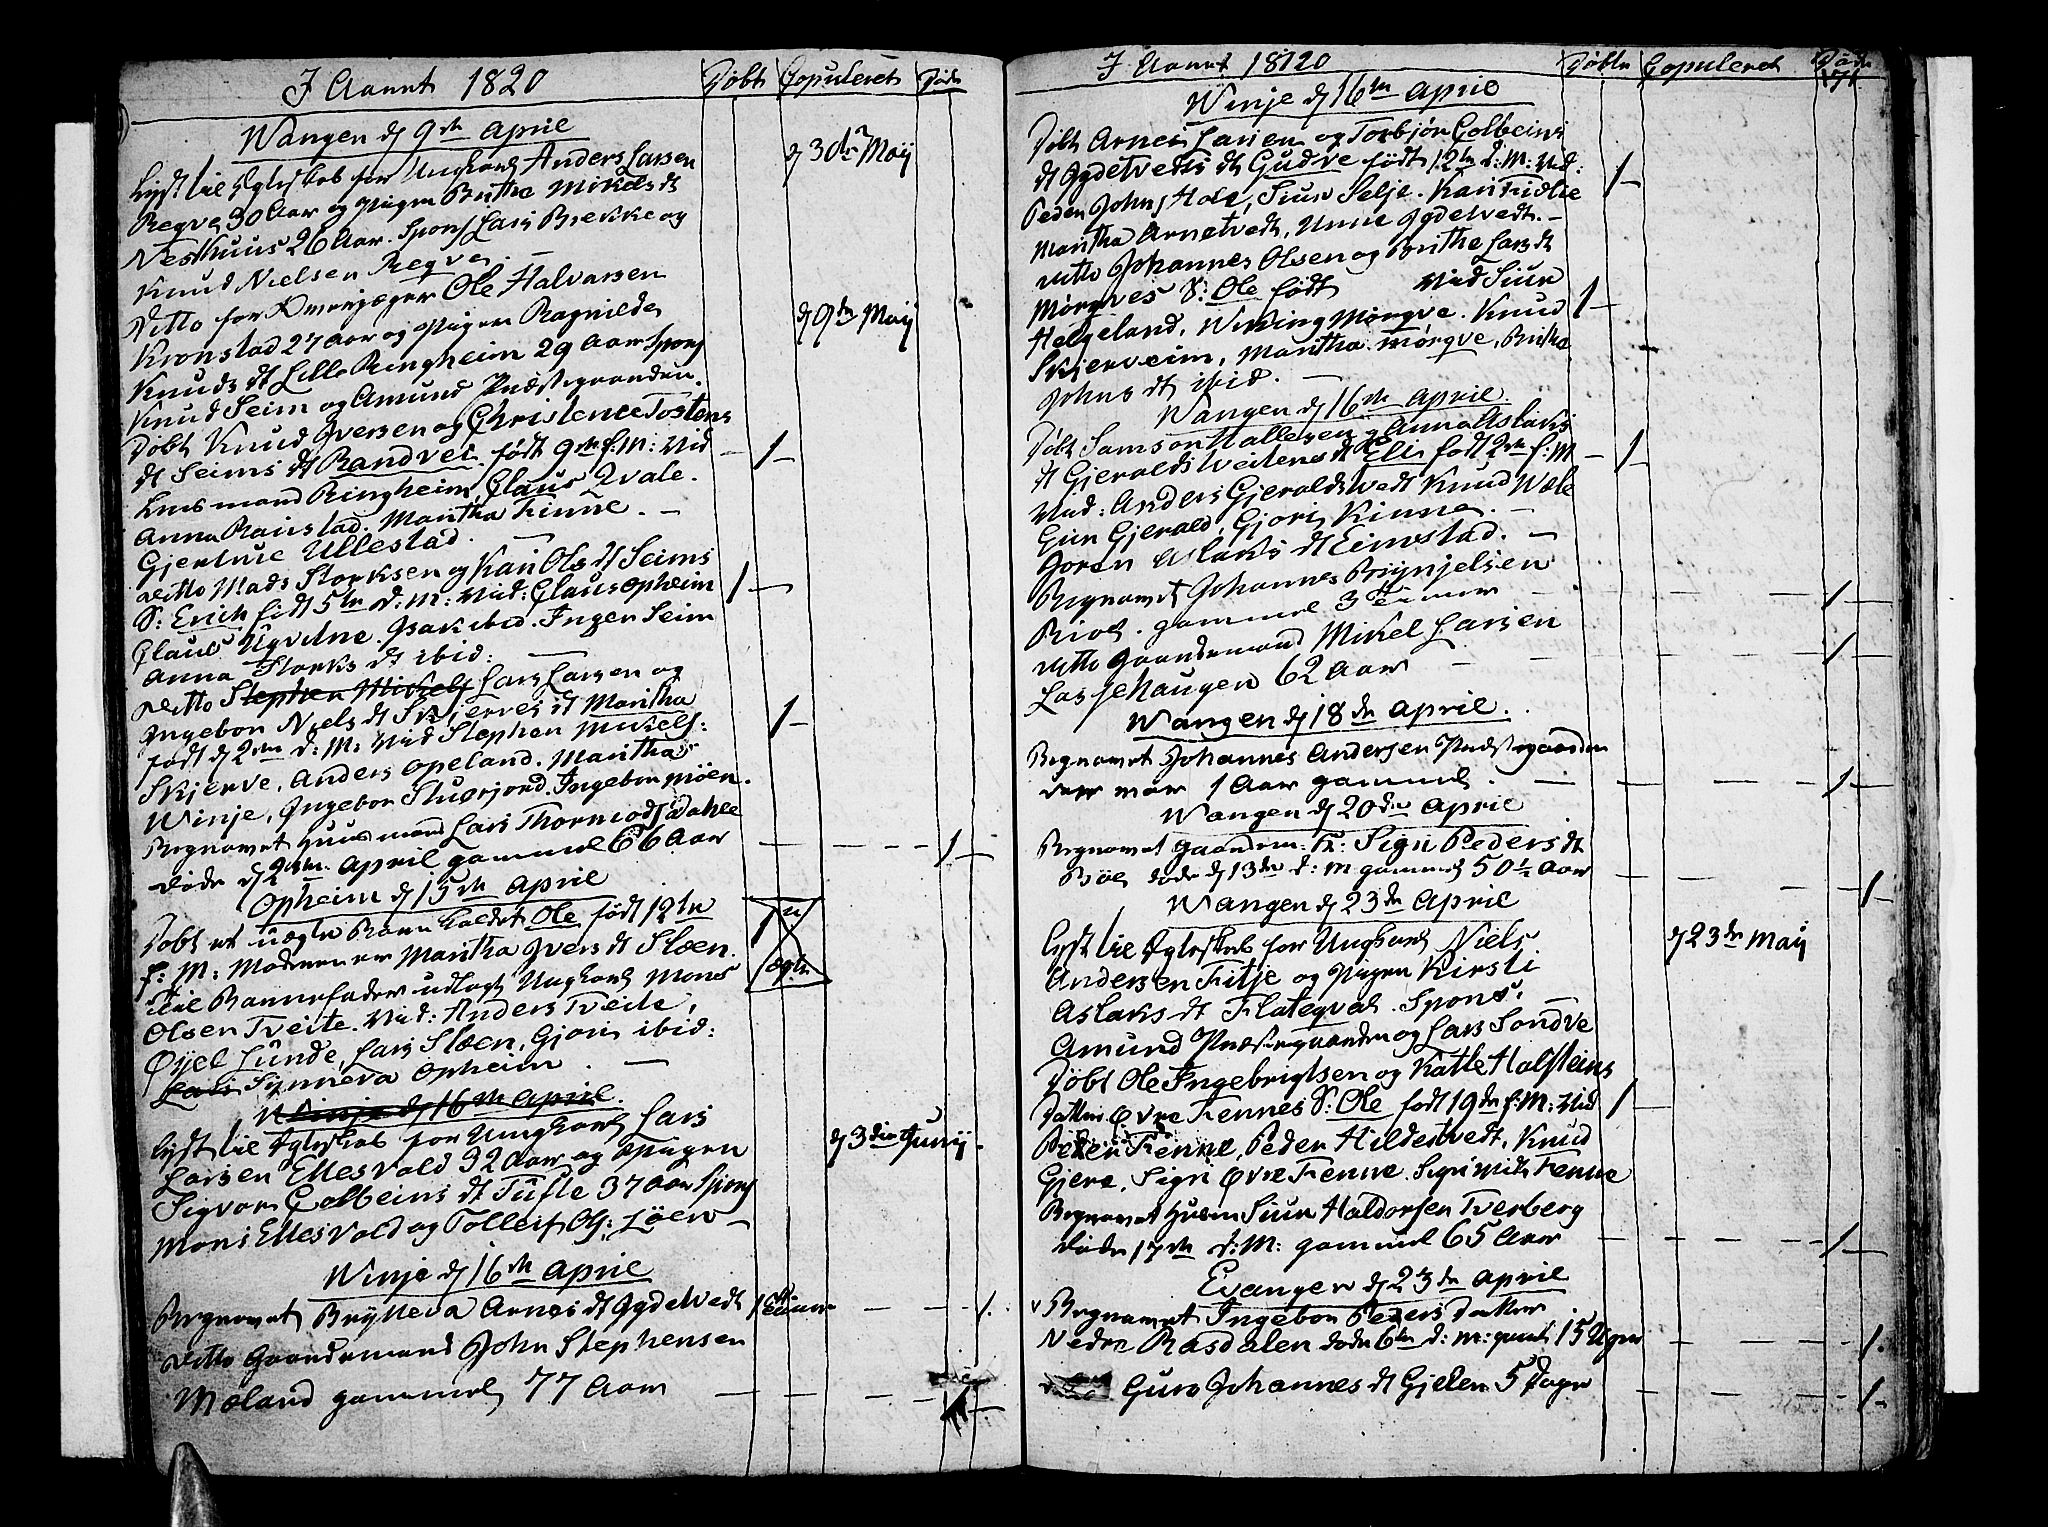 I Aaret 1820 Döbt Copuleret Döde
Wangen d 9de April
Lyst til Ægteskab for Ungkarl Anders Larsen d 30te Maÿ
Regve 30 Aar og Pigen Britha Mikels dt
Nesthuus 26 Aar. Spons Lars Brekke og
Knud Nielsen Regve.
Ditto for Ole Halvorsen
Kronstad 27 Aar og Pigen Ragnilde d 9de Maij
Knuds dt Lille Ringheim 29 Aar Spons
Knud Seim og Amund Præstegaarden.
Döbt Knud Iversen og Christence Tostens
dt Seims dt Randvei född 9de f: M: Vid 1
Lensmand Ringheim, Claus Qvale.
Anna Raustad. Martha Finne.
Gjertrue Ullestad.
Ditto Mads Storksen og Kari Ols dt Seims
S: Erich född 5te d: M: Vid: Claus Opheim 1
Claus Ugvelne. Isak ibid. Inger Seim
Anna Storks dt ibid:
Ditto Stephen Mikels Lars Larsen og
Ingebor Niels dt Skjerves dt Martha
född d 2den d: M: Vid Stephen Mikels: 1
Skjerve, Anders Opeland. Martha
Winje, Ingebor Stuerjord. Ingebor Möen.
Begravet Huusmand Lars Thormods Dahle
döde d 2den April gammel 66 Aar 1
Opheim d 15de April
Döbt et uægte Barn kaldet Ole född 12te 1 u
f: M: Moderen er Martha Ivers dt Slæen. ægte
til Barnefader udlagt Ungkarl Mons
Olsen Tveite. Vid: Anders Tveite,
Öyel Lunde, Lars Slæen, Gjöri ibid:
Synneva Opheim
Winje d 16de April.
Lyst til Ægteskab for Ungkarl Lars d 3die Junij.
Larsen Ellesvold 32 Aar og Pigen
Sigvor Colbeins dt Tufte 37 Aar Spons
Mons Ellesvold og Tolleif Ols: Löen
Winje d 16de April
Begravet Brytteva Arnes dt Ygdelvedt 1.
Ditto Gaardemand John Stephensen
Mæland gammel 77 Aar 1
I Aaret 1820 Döbte Copuleret Döde
171
Winje d 16de April
Döbt Arnes Larsen og Torbjör Colbeins
dt Ygdetvedts dt Gudve född 12te d: M: Vid: 1
Peder Johns Hole, Siur Selje. Kari
Martha Arnetvedt, Unne Ygdelvedt.
Ditto Johannes Olsen og Britha Lars dt
Mörqves S: Ole född Vid Siur 1
Helgeland, Mörqve. Knud
Skjerveim, Martha Mörqve, Britha
Johns dt ibid.
Wangen d 16de April
Döbt Samson Hallesen og Anna Aslaks
dt Gjeralds dt Eli född 2den f: M 1
Vid: Anders Gjeraldstvedt Knud Wæle
Gjerald, Gjori Kinne
Joren Aslaks dt Eimstad.
Begravet Johannes Brynjelsen
gammel 3 Timer 1
Ditto Gaardemand Mikel Larsen
Lassehaugen 62 Aar 1
Wangen d 18de April.
Begravet Johannes Andersen Præstegaarden
1 Aar gammel. 1
Wangen d 20de April
Begravet Gaardm: K: Sigri Peders dt
Böe, döde d 13de d: M gammel 50½ Aar 1
Wangen d 23de April
Lyst til Ægteskab for Ungkarl Niels d 23de Maij
Andersen Fitje og Pigen Kirsti
Aslaks dt Flateqval. Spons.
Amund Præstegaarden og Lars Sondve
Döbt Ole Ingebrigtsen og Katle Halsteins
Datter Övre Fennes S: Ole född 19de f: M: Vid 1
Peder Fenne, Peder Hildestvedt, Knud
Gjere. Sigri Övre Fenne. Sigri Midt Fenne
Begravet Siur Haldorsen Tverberg
döde 17de d: M: gammel 65 Aar 1
Evanger d 23de April
Begravet Ingebor Peders Datter
Nedre Rasdalen döde 6te d: M: gaml 15 Uger 1.
Guro Johannes dt Gjelen 5 Dage 1